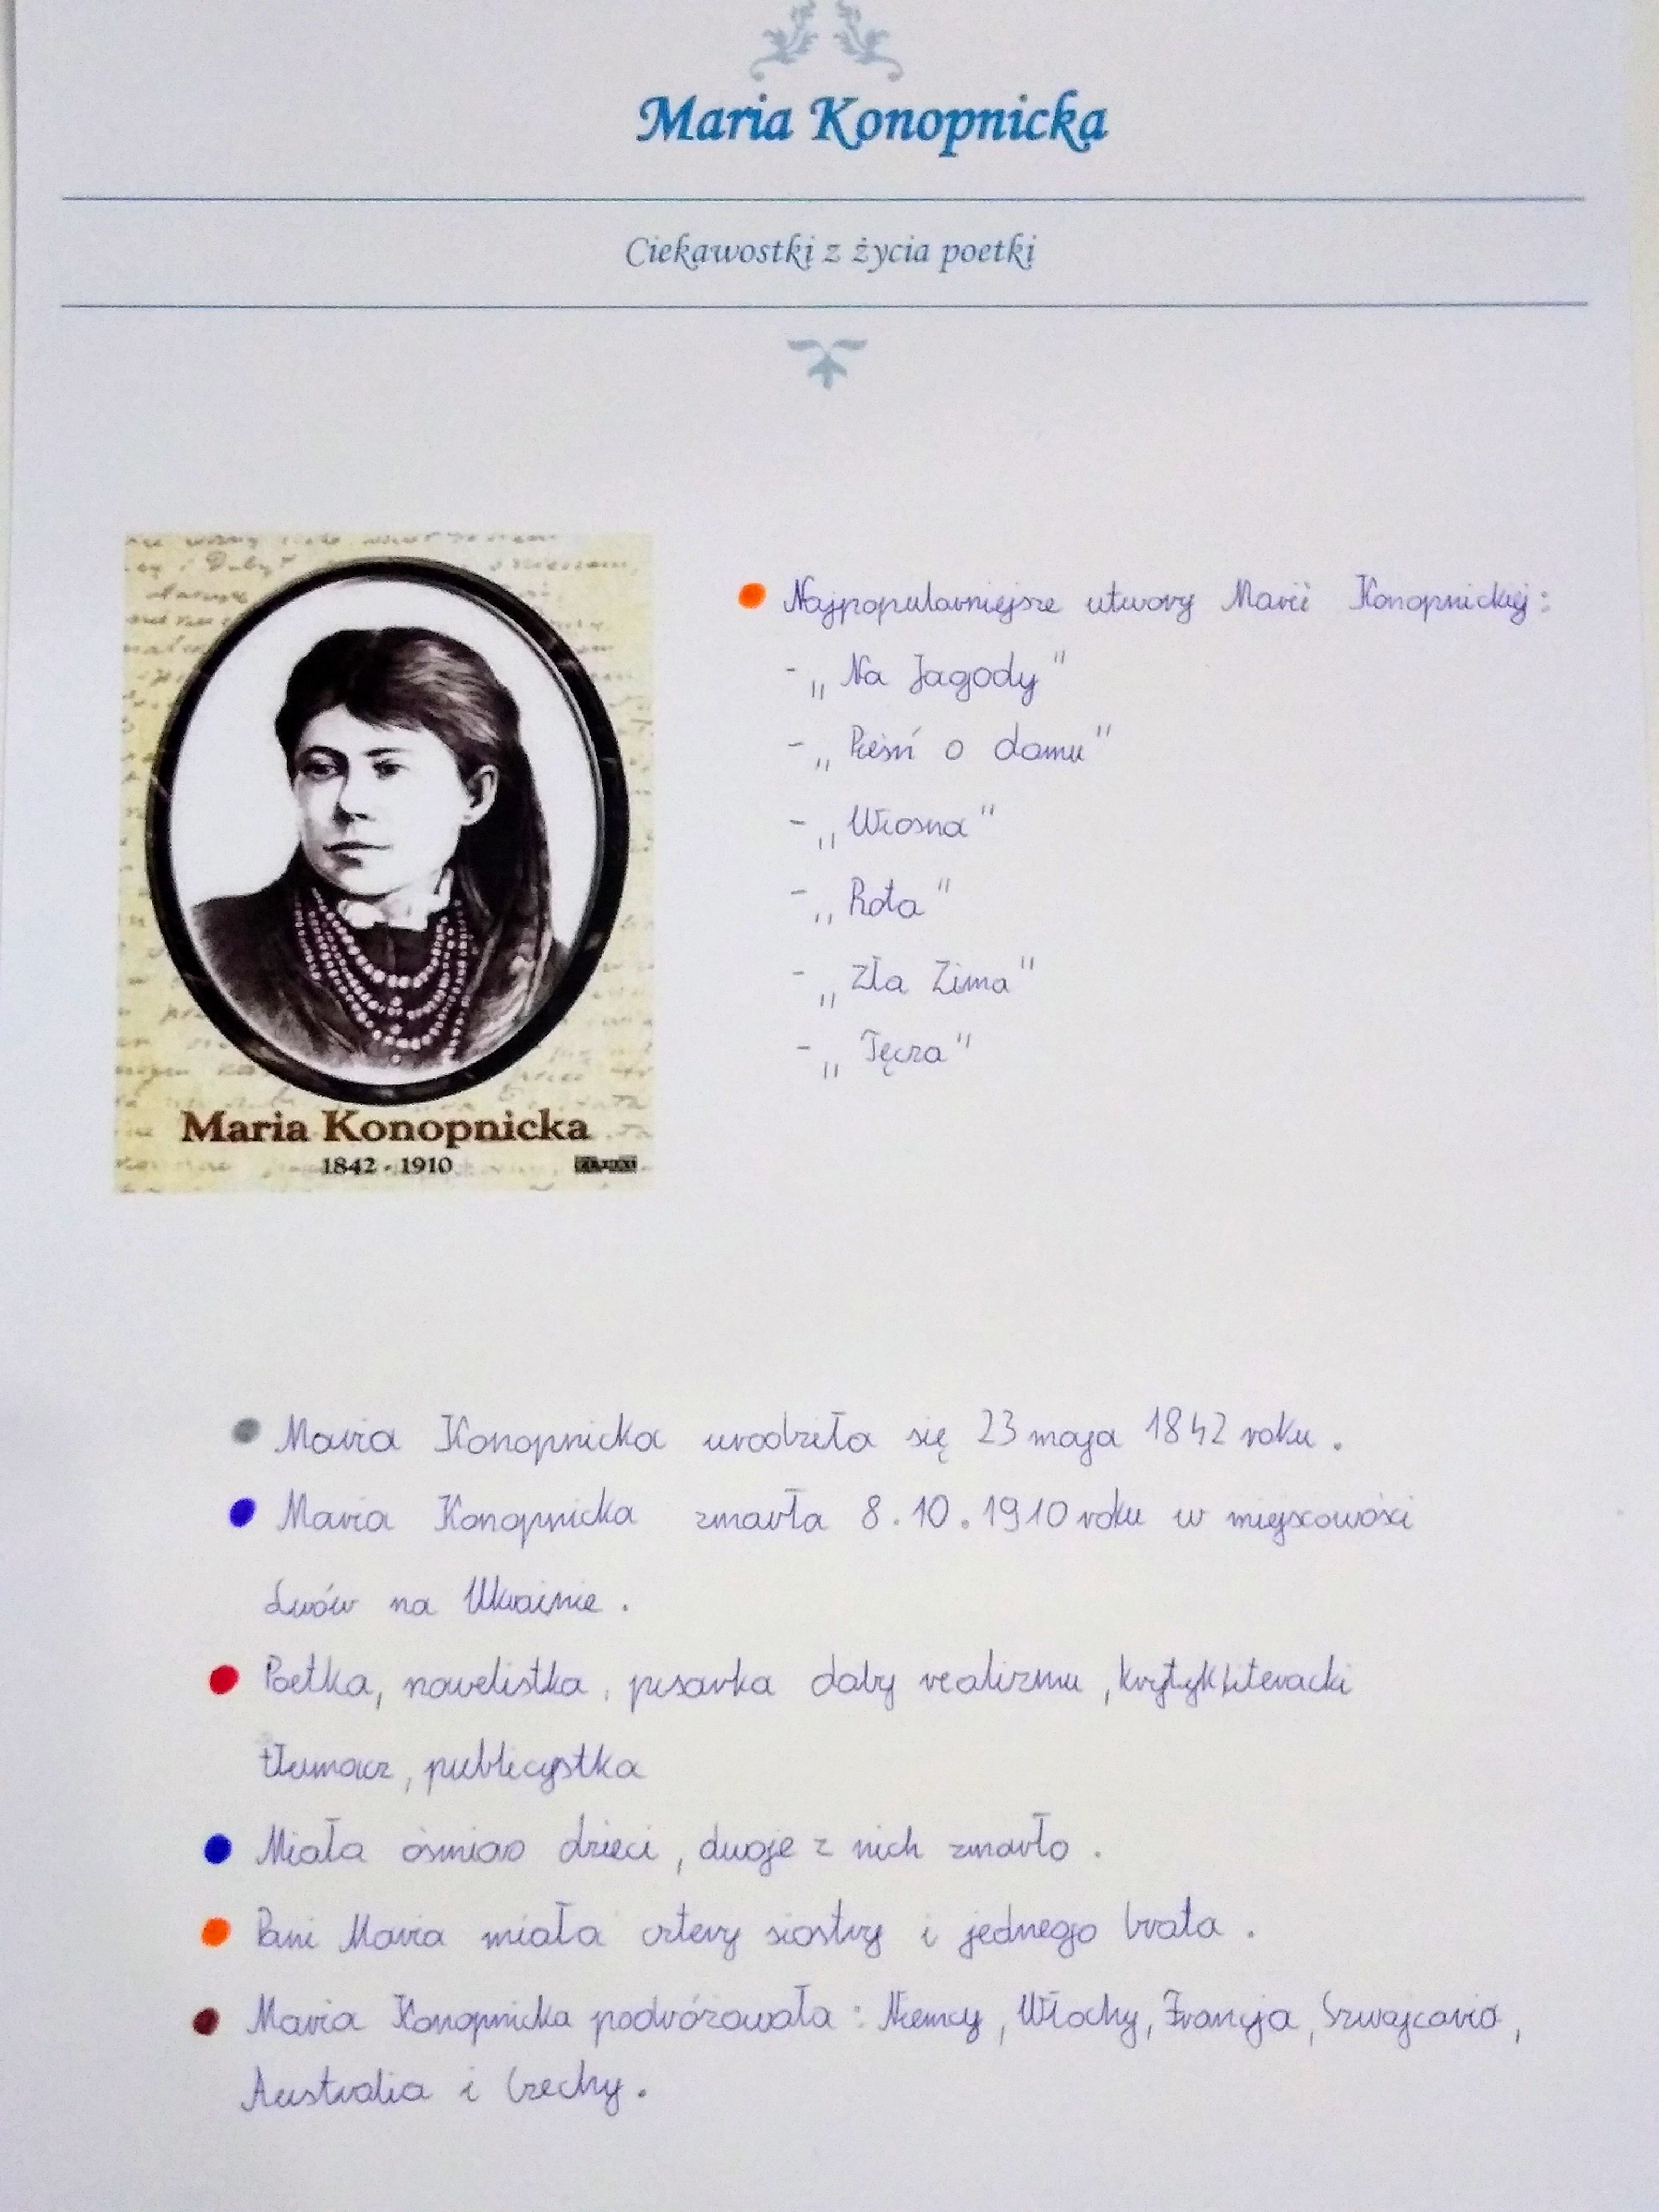 Maria Konopnicka
Ciekawostki z życia poetki
Maria Konopnicka
1842 - 1910
• Najpopularniejsze utwory Marii Konopnickiej:
- „Na Jagody"
- „Pieśń o domu"
- „Wiosna"
- „Rota"
- „Zła Zima"
- „Tęcza"
• Maria Konopnicka urodziła się 23 maja 1842 roku.
• Maria Konopnicka zmarła 8.10.1910 roku w miejscowości
Lwów na Ukrainie.
• Poetka, nowelistka, pisarka doby realizmu, krytyk literacki
tłumacz, publicystka
• Miała ośmioro dzieci, dwoje z nich zmarło.
• Pani Maria miała cztery siostry i jednego brata.
• Maria Konopnicka podróżowała: Niemcy, Włochy, Francja, Szwajcaria,
Australia i Czechy.